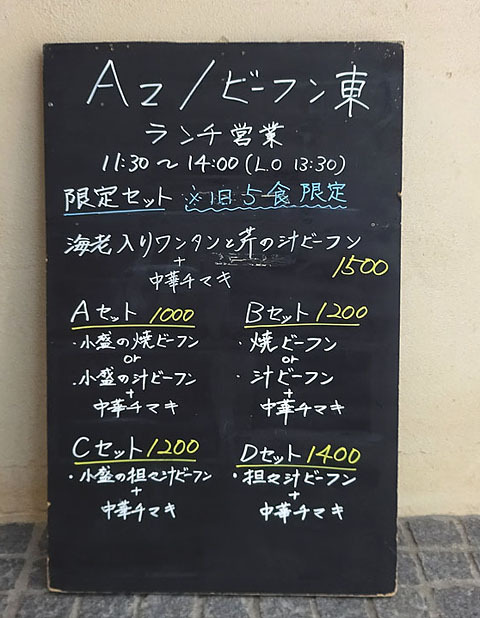 Az/ビーフン東
ランチ営業
11:30〜14:00(L.O 13:30)
限定セット ※1日5食限定
海老入りワンタンと芹の汁ビーフン
+
中華チマキ
1500
Aセット 1000
・小盛の焼ビーフン
or
・小盛の汁ビーフン
+
中華チマキ
Bセット 1200
・焼ビーフン
or
・汁ビーフン
+
中華チマキ
Cセット 1200
・小盛の担々汁ビーフン
+
中華チマキ
Dセット 1400
・担々汁ビーフン
+
中華チマキ